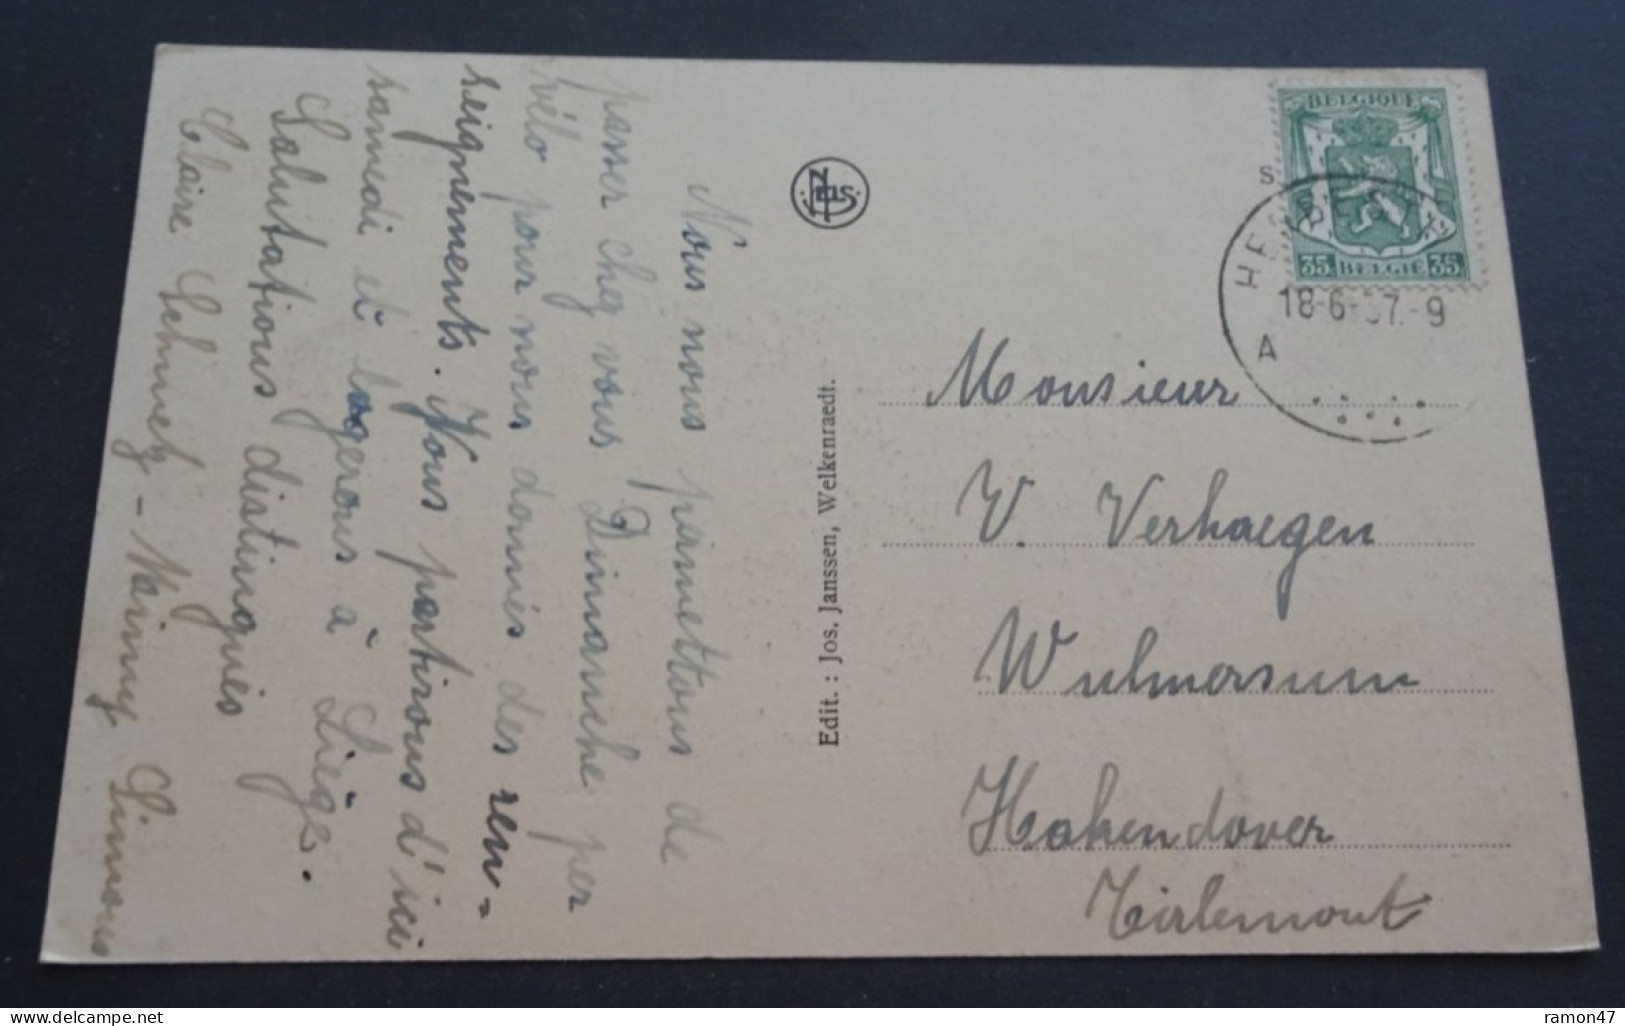 Nous nous permettons de
passer chez vous Dimanche per
vélo pour nous donnés des ren=
seignements. Nous partirons d'ici
samedi et logerons à Liège.
Salutations distingués
Claire Schmetz - Nainny Simons
Nels
Edit. : Jos. Janssen, Welkenraedt.
BELGIQUE
35 BELGIË 35
18-6-37.-9
A
Monsieur
V. Verhaegen
Wulmersum
Hakendover
Tirlemont
delcampe.net
ramon47